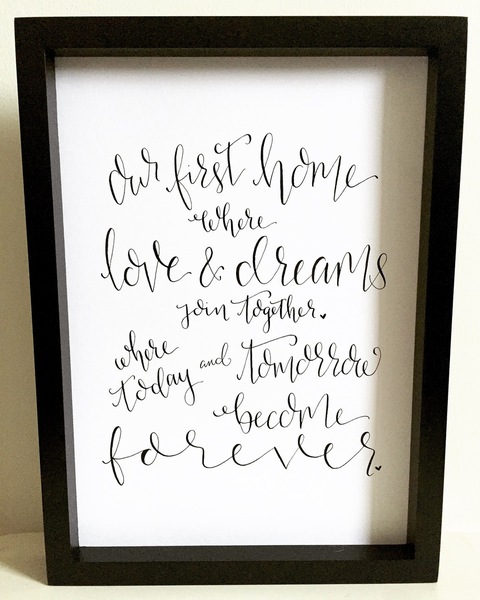 our first home
where
love & dreams
join together.
where
today and tomorrow
become
forever.